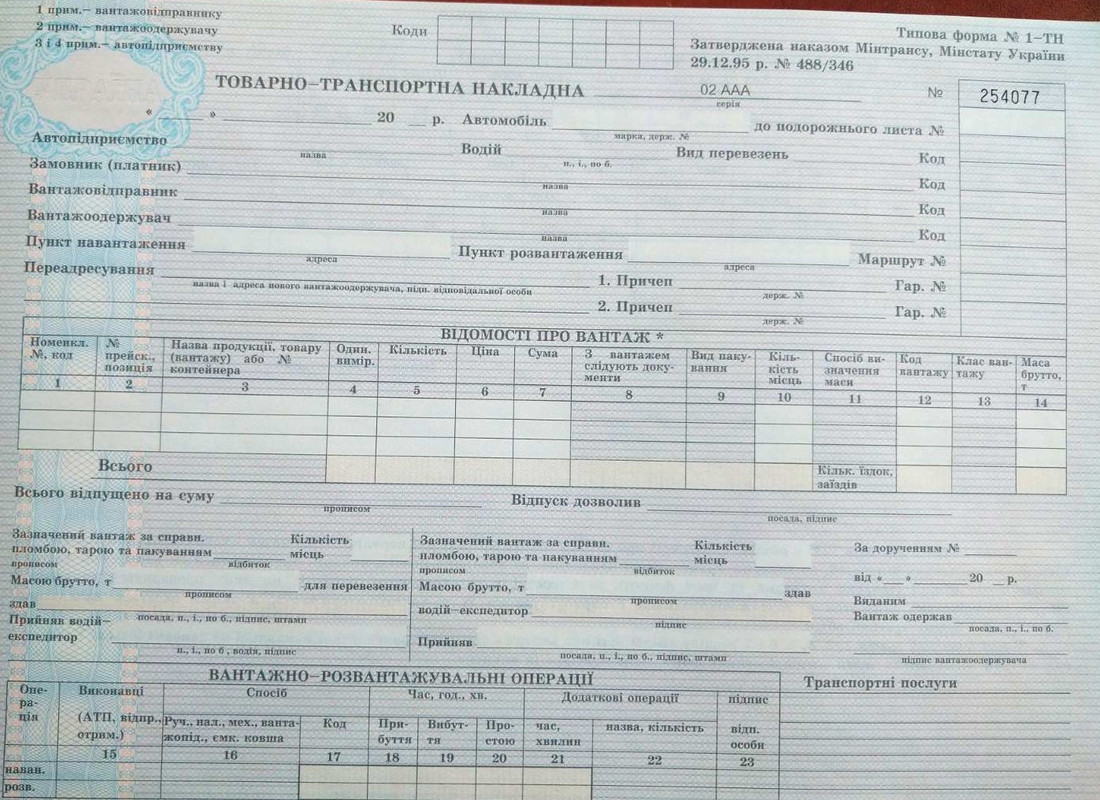 1 прим.— вантажовідправнику
2 прим.— вантажоодержувачу
3 і 4 прим.— автопідприємству
Коди
Типова форма № 1—ТН
Затверджена наказом Мінтрансу, Мінстату України
29.12.95 р. № 488/346
ТОВАРНО—ТРАНСПОРТНА НАКЛАДНА 02 ААА № 254077
серія
« » 20 р. Автомобіль до подорожнього листа №
марка, держ. №
Автопідприємство Водій Вид перевезень Код
назва п., і., по б.
Замовник (платник) Код
назва
Вантажовідправник Код
назва
Вантажоодержувач Код
назва
Пункт навантаження Пункт розвантаження Маршрут №
адреса адреса
Переадресування 1. Причеп Гар. №
назва і адреса нового вантажоодержувача, підп. відповідальної особи держ. №
2. Причеп Гар. №
держ. №
ВІДОМОСТІ ПРО ВАНТАЖ *
Номенкл. №, код
№ прейск., позиція
Назва продукції, товару (вантажу) або № контейнера
Один. вимір.
Кількість
Ціна
Сума
З вантажем слідують документи
Вид пакування
Кількість місць
Спосіб визначення маси
Код вантажу
Клас вантажу
Маса брутто, т
1 2 3 4 5 6 7 8 9 10 11 12 13 14
Всього
Кільк. їздок, заїздів
Всього відпущено на суму Відпуск дозволив
прописом посада, підпис
Зазначений вантаж за справн. Кількість
пломбою, тарою та пакуванням місць
прописом відбиток
Масою брутто, т для перевезення
прописом
здав
посада, п., і., по б., підпис, штамп
Прийняв водій—
експедитор
п., і., по б , водія, підпис
Зазначений вантаж за справн. Кількість
пломбою, тарою та пакуванням місць
прописом відбиток
Масою брутто, т здав
прописом
водій—експедитор
підпис
Прийняв
посада, п., і., по б., підпис, штамп
За дорученням №
від « » 20 р.
Виданим
Вантаж одержав
посада, п., і., по б.
підпис вантажоодержувача
ВАНТАЖНО—РОЗВАНТАЖУВАЛЬНІ ОПЕРАЦІЇ
Транспортні послуги
Операція
Виконавці (АТП, відпр., отрим.)
Спосіб
Час, год., хв.
Додаткові операції
підпис відп. особи
Руч., нал., мех., вантажопід., ємк. ковша
Код
Прибуття
Вибуття
Простою
час, хвилин
назва, кількість
15 16 17 18 19 20 21 22 23
наван.
розв.